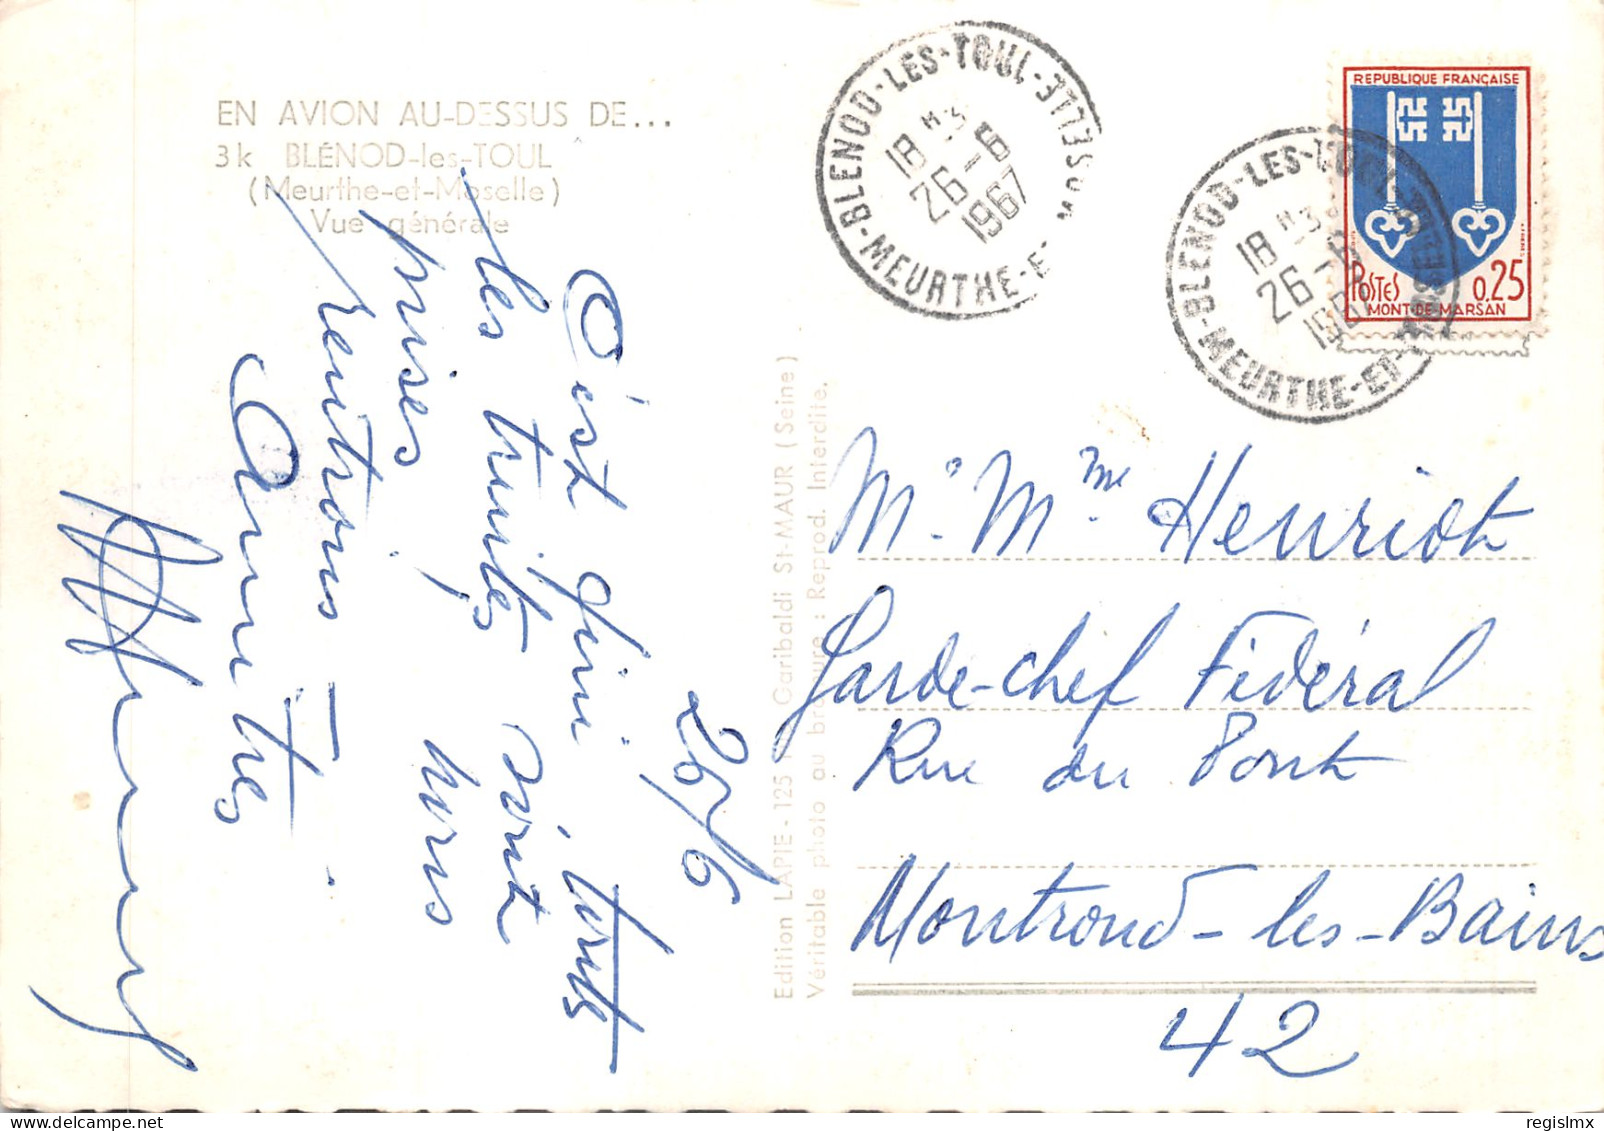 EN AVION AU-DESSUS DE...
3k BLÉNOD-les-TOUL
(Meurthe-et-Moselle)
Vue générale
26/6
C'est fini, toutes
les truites sont
prises hors
rentrons
Amitiés
Edition LAPIE - 125 Garibaldi St-MAUR (Seine)
Véritable photo au bromure : Reprod. Interdite.
BLENOD-LES-TOUL
18 H 3
26-6
1967
MEURTHE-E
BLENOD-LES-TOUL
18 H 3
26-6
MEURTHE-ET
REPUBLIQUE FRANÇAISE
POSTES 0,25
MONT-DE-MARSAN
Mr Mme Henriot
Garde-chef Fédéral
Rue du Pont
Montrond-les-Bains
42
regislmx